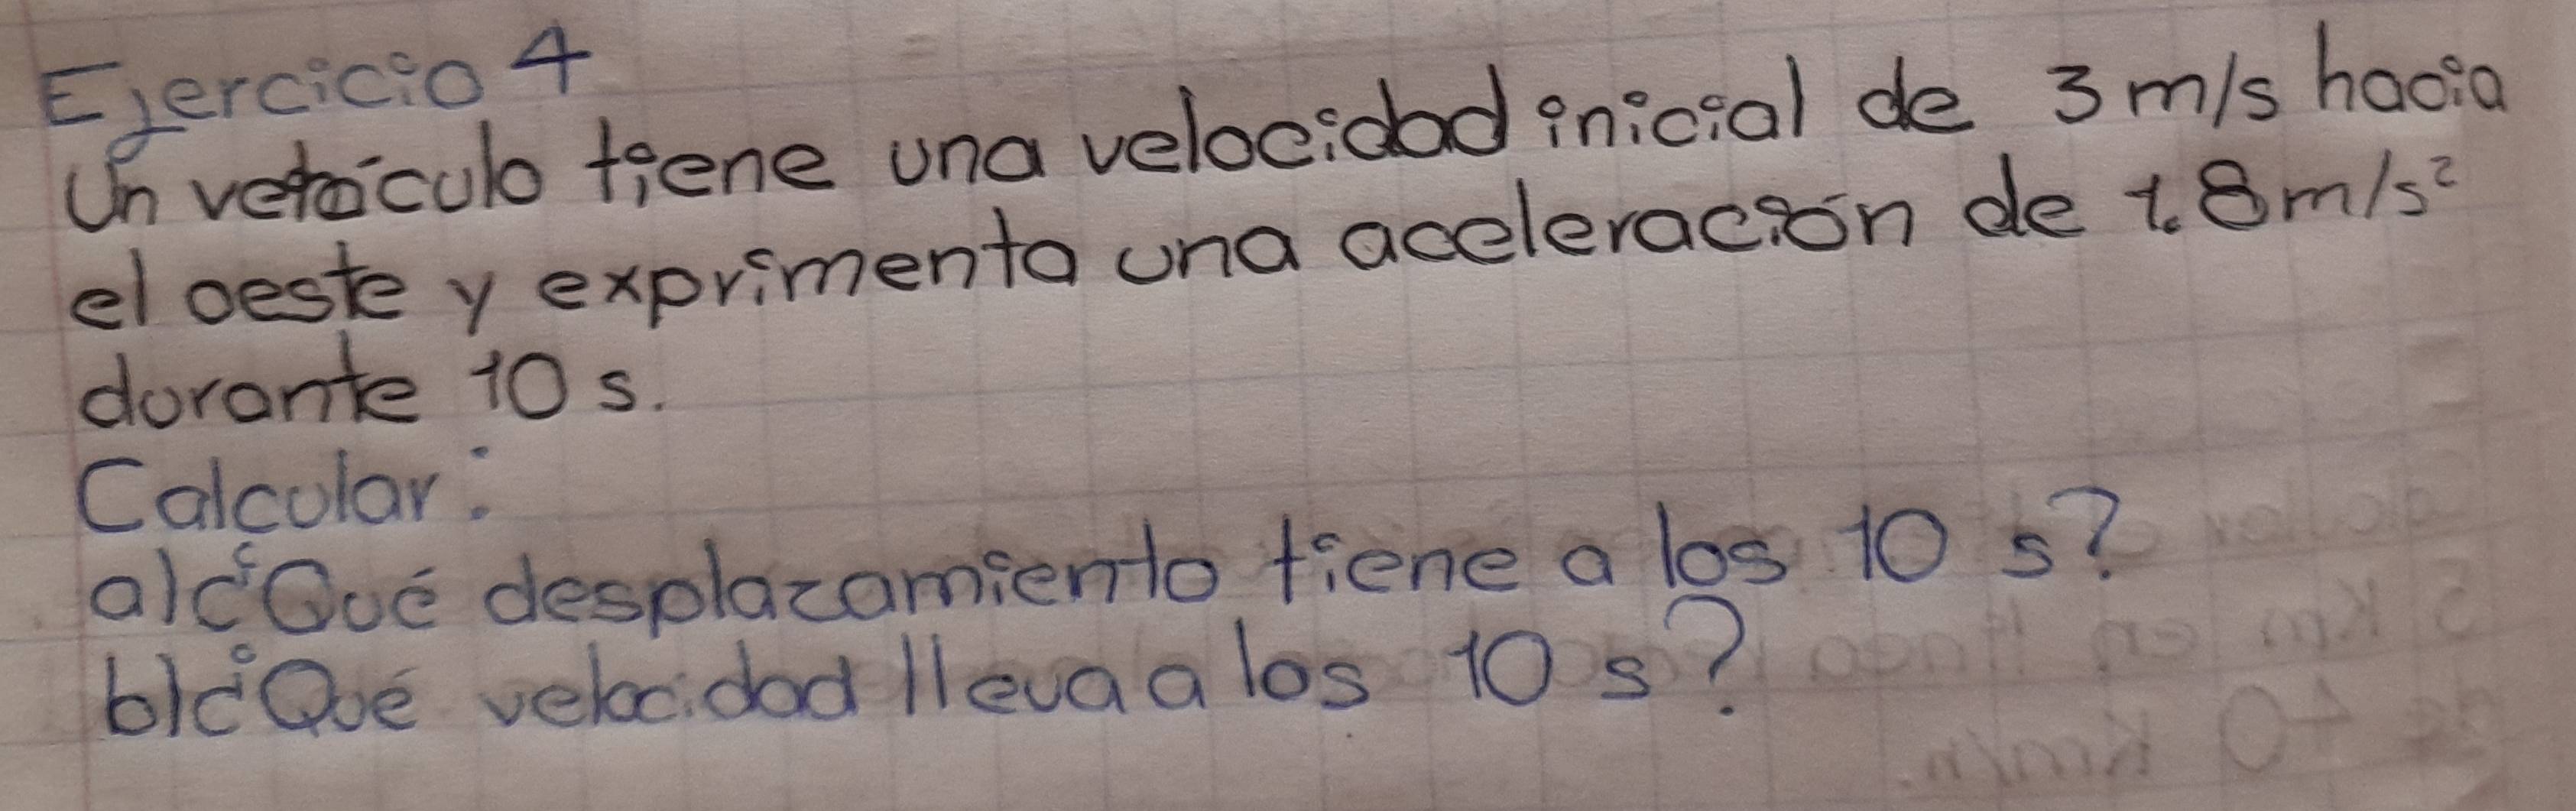 Ejercicio 4
Un vehículo tiene una velocidad inicial de 3 m/s hacia
el oeste y exprimenta una aceleración de 1.8 m/s²
durante 10 s.
Calcular:
a) ¿Qué desplazamiento tiene a los 10 s?
b) ¿Qué velocidad lleva a los 10 s?